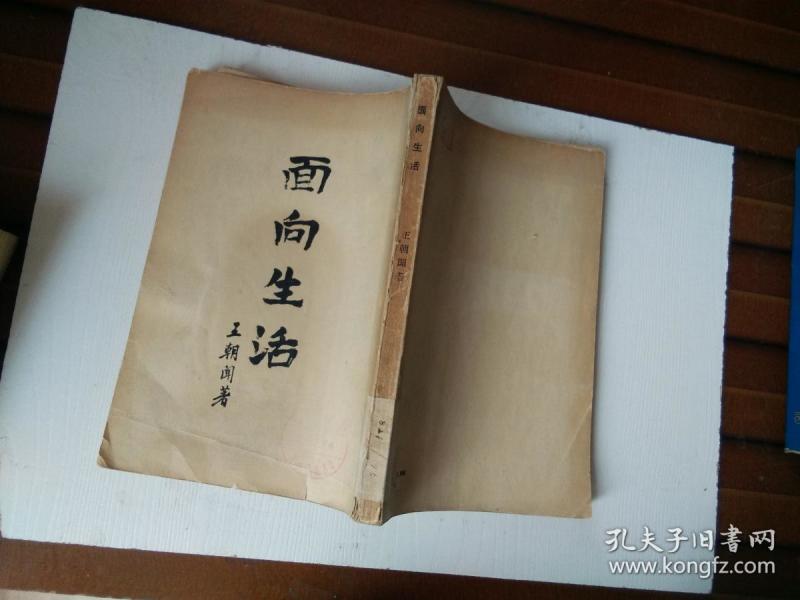 面向生活
王朝闻著
面向生活
王朝聞著
孔夫子旧书网
www.kongfz.com